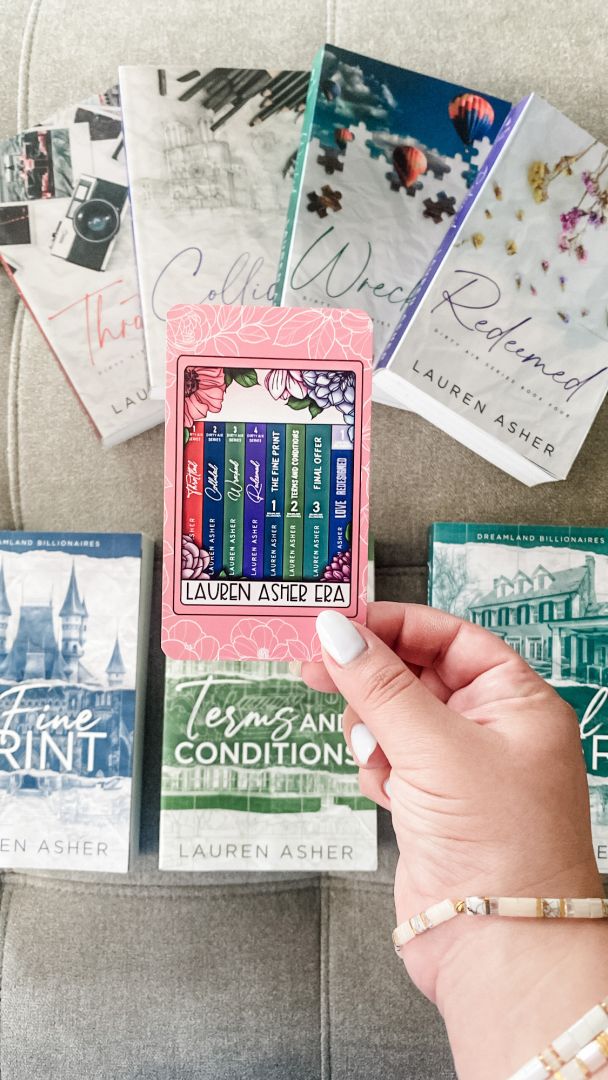 Thro
LAUR
Collid
Wreck
DIRTY AIR
Redeemed
DIRTY AIR SERIES BOOK FOUR
LAUREN ASHER
1
2
DIRTY AIR
SERIES
3
DIRTY AIR
SERIES
4
DIRTY AIR
SERIES
1
Throttled
Collided
Wrecked
Redeemed
THE FINE PRINT
TERMS AND CONDITIONS
FINAL OFFER
LOVE REDESIGNED
1
2
3
LAUREN ASHER
LAUREN ASHER
LAUREN ASHER
LAUREN ASHER
LAUREN ASHER
LAUREN ASHER
LAUREN ASHER
LAUREN ASHER ERA
AMLAND BILLIONAIRES
Fine
RINT
EN ASHER
Terms AND
CONDITIONS
LAUREN ASHER
DREAMLAND BILLIONAIRES